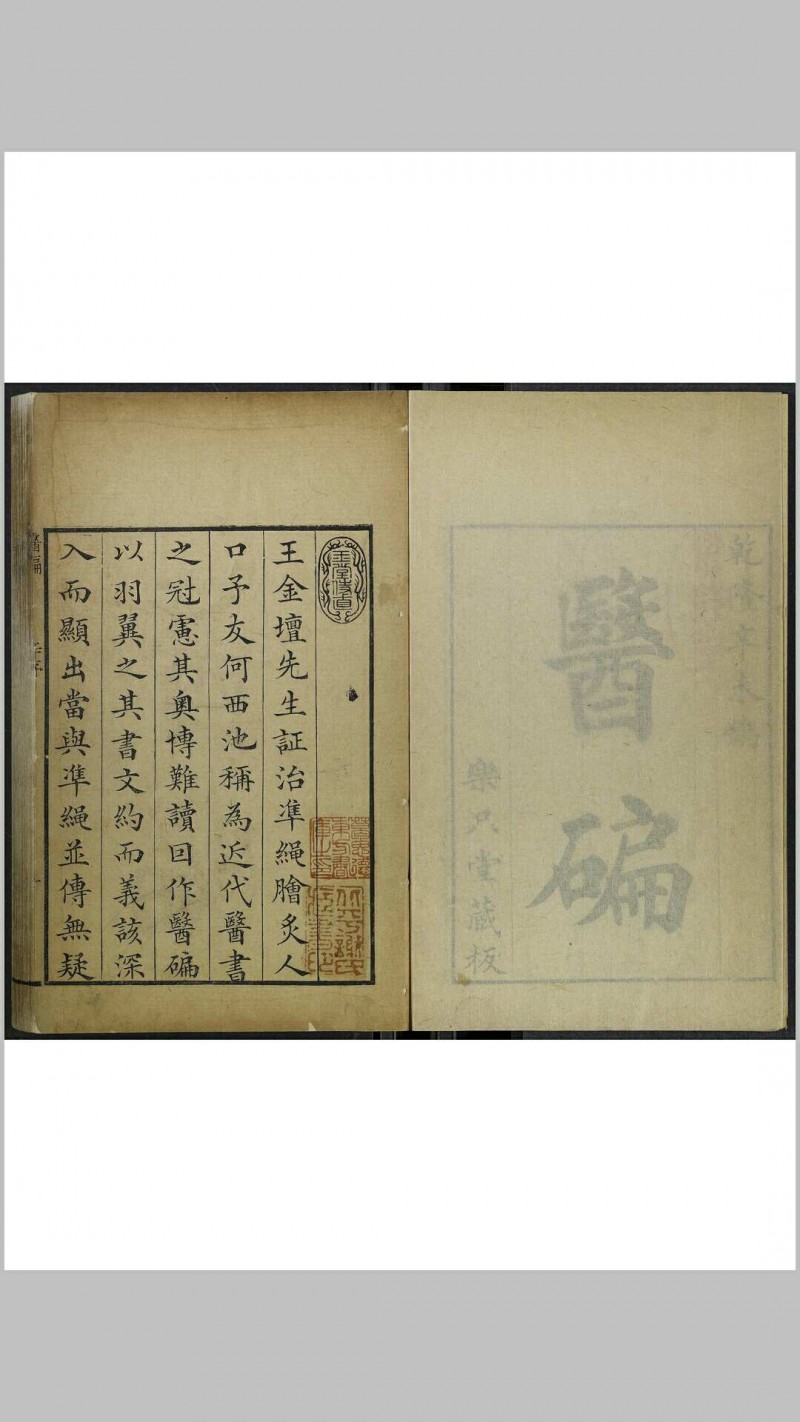 乾隆辛未鐫
醫碥
樂只堂藏板
玉堂傳直
王金壇先生証治凖繩膾炙人
口予友何西池稱為近代醫書
之冠慮其奥博難讀因作醫碥
以羽翼之其書文約而義該深
入而顯出當與凖繩並傳無疑